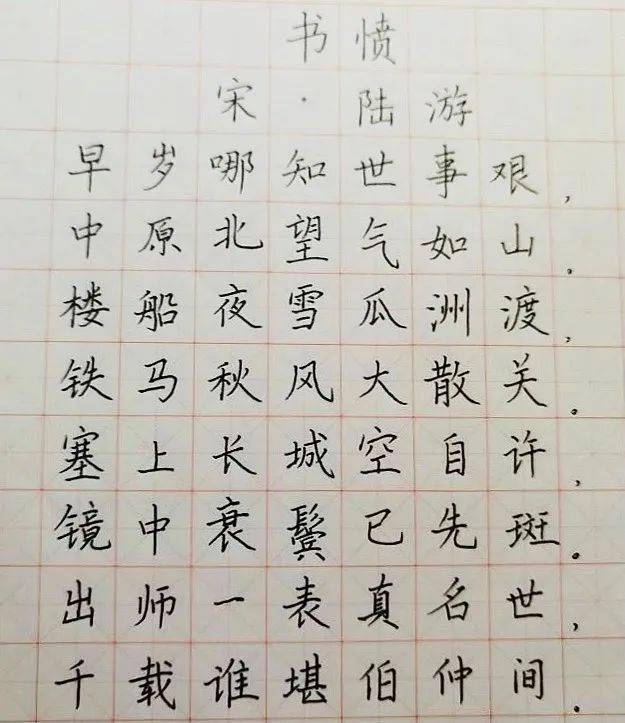 书愤
宋·陆游
早岁哪知世事艰，
中原北望气如山。
楼船夜雪瓜洲渡，
铁马秋风大散关。
塞上长城空自许，
镜中衰鬓已先斑。
出师一表真名世，
千载谁堪伯仲间。